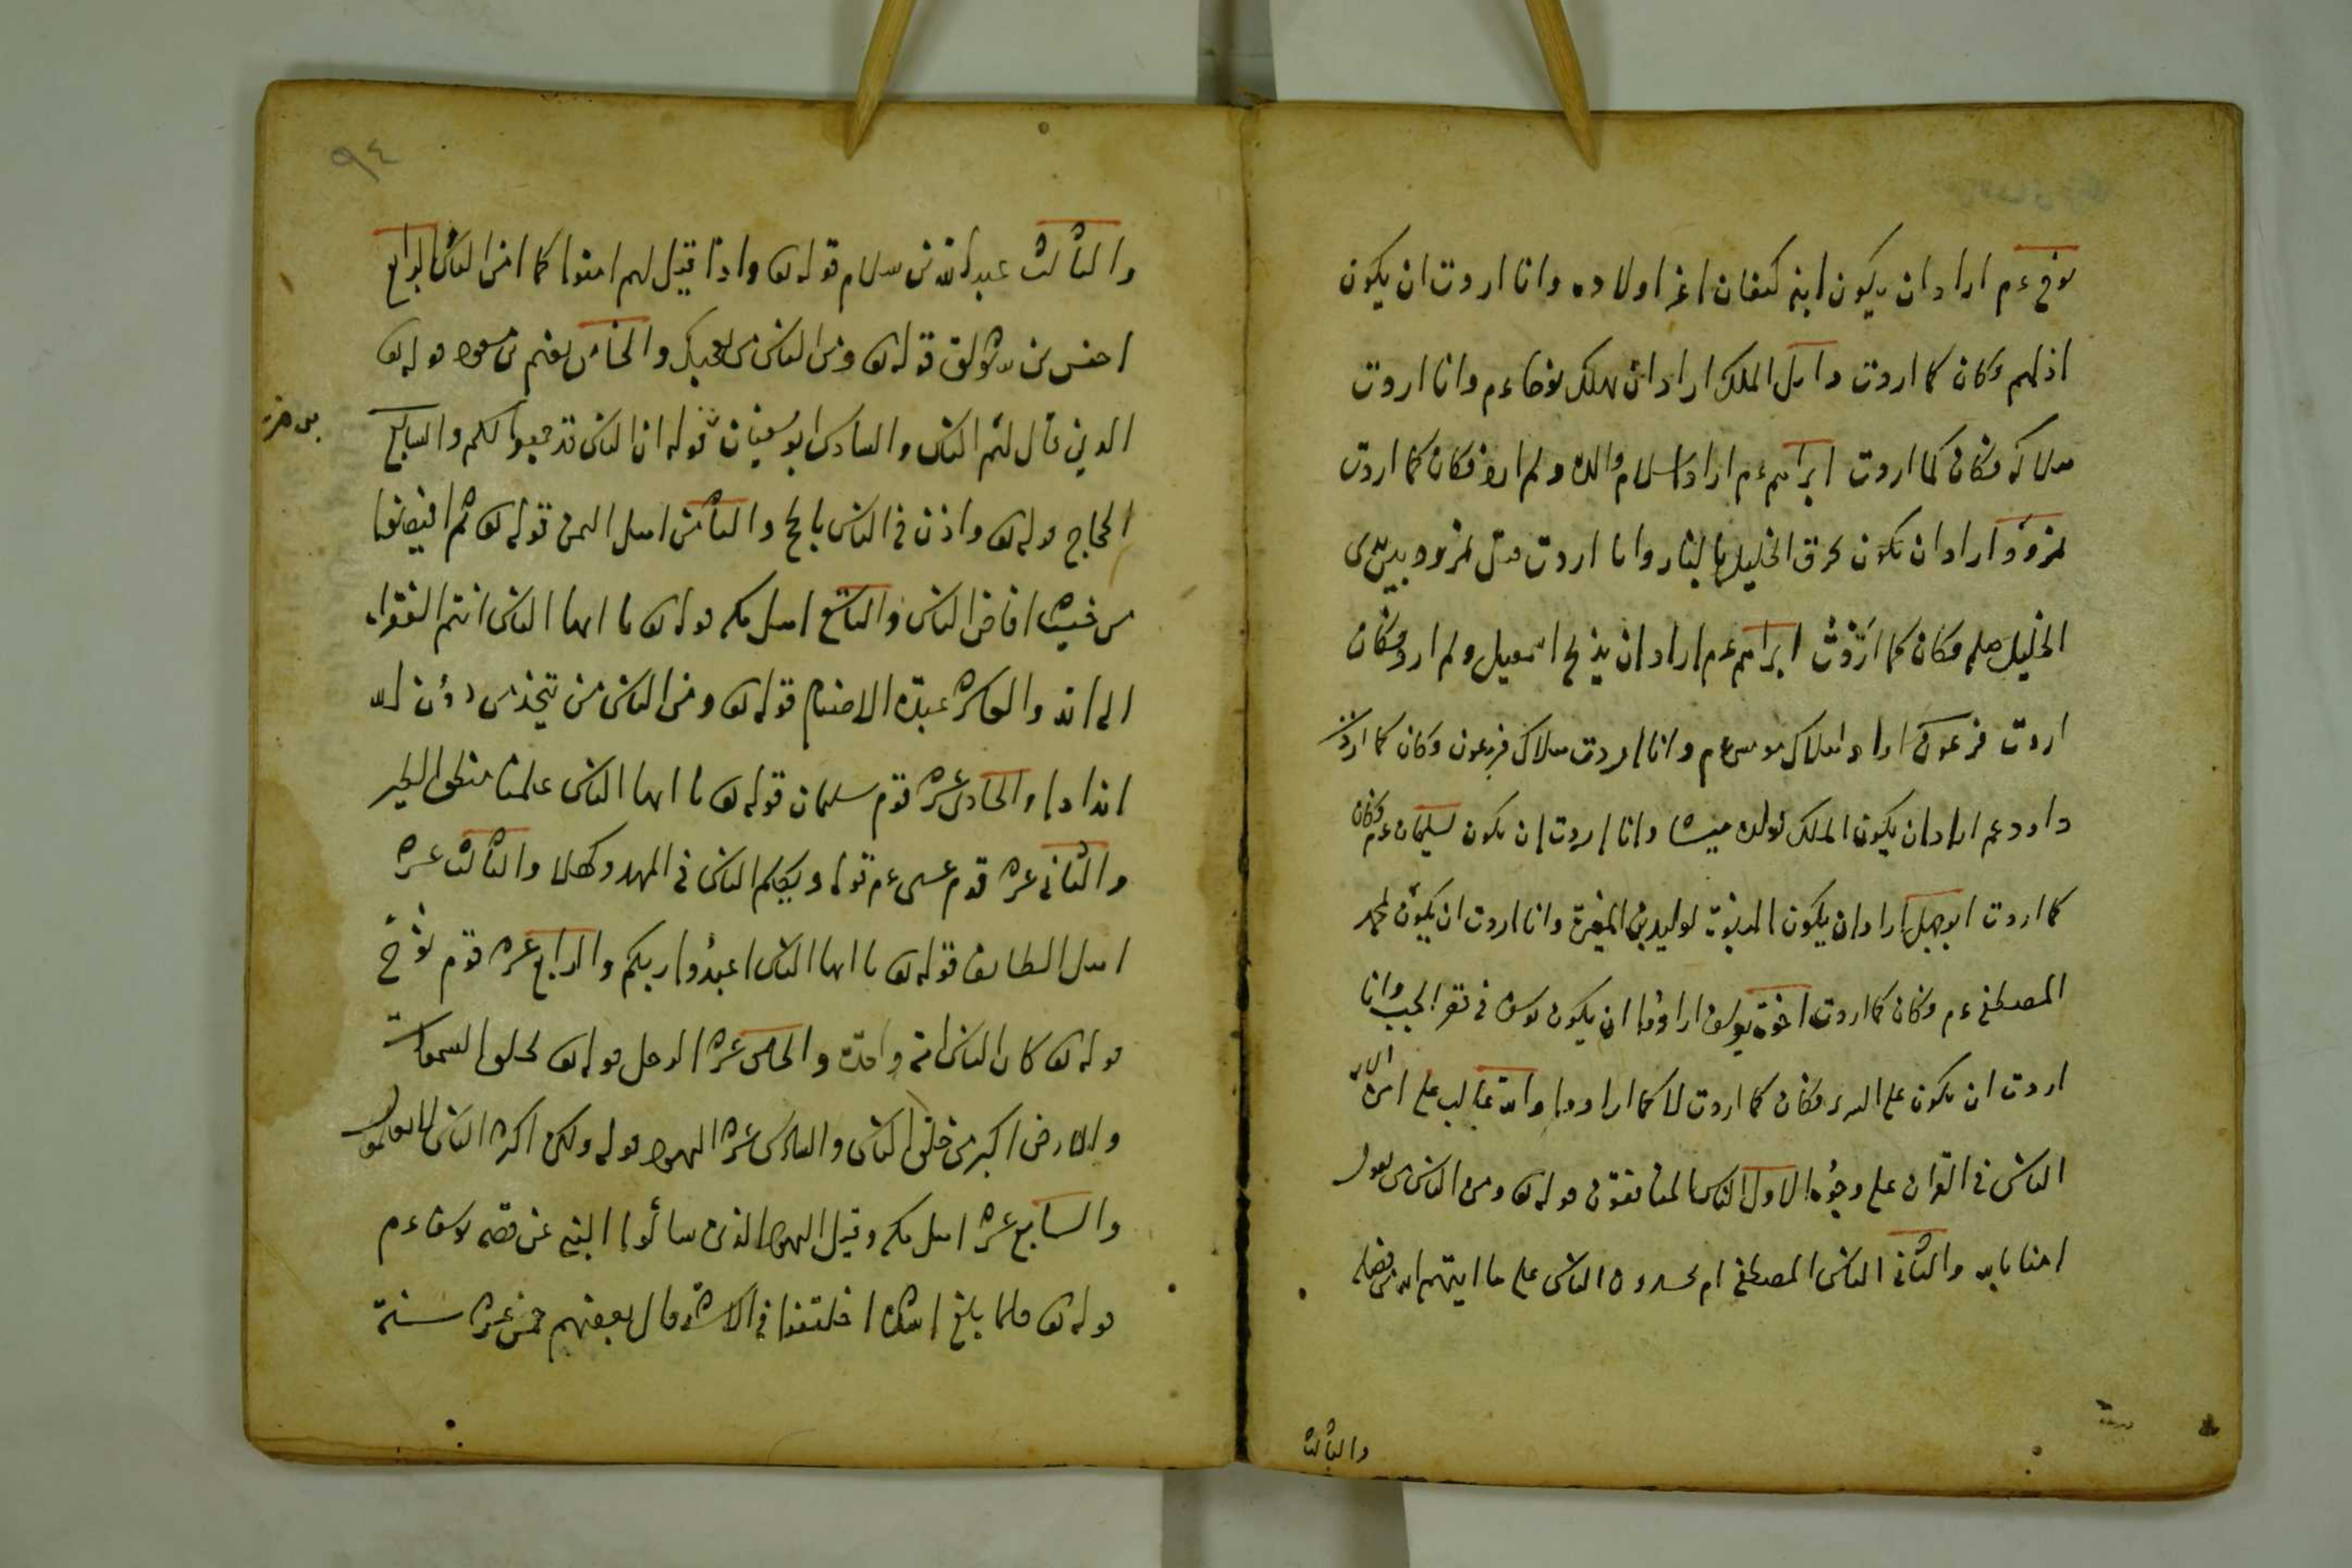 نوح ءم اراد ان يكون ابنه كنعان اعز اولاده وانا اردت ان يكون
اذلهم وكان كما اردت دابيل الملك اراد ان يهلك نوحا ءم وانا اردت
هلاكه فكان كما اردت ابراهيم ءم اراد اسلام والده ولم ارد فكان كما اردت
نمرود اراد ان يكون يحرق الخليل بالنار وانا اردت قتل نمرود بيدي
الخليل صلم فكان كما اردت ابراهيم ءم اراد ان يذبح اسمعيل ولم ارد فكان
اردت فرعون اراد اهلاك موسى ءم وانا اردت هلاك فرعون وكان كما اردت
داود عم اراد ان يكون الملك لولده ميشا وانا اردت ان يكون لسليمان ءم وكان
كما اردت ابو جهل اراد ان يكون النبوة لوليد بن المغيرة وانا اردت ان يكون لمحمد
المصطفى ءم وكان كما اردت اخوة يوسف ارادوا ان يكون يوسف في قعر الجب وانا
اردت ان يكون على السرير فكان كما اردت لا كما ارادوا والله غالب على امره الاية
الناس في القران على وجوه الاول الناس المنافقون قوله تع ومن الناس من يقول
امنا بالله والثاني الناس المصطفى ام يحسدون الناس على ما اتيهم الله من فضله
والثالث
٩٤
والثالث عبد الله بن سلام قوله تع واذا قيل لهم امنوا كما امن الناس الرابع
اخنس بن شريق قوله تع ومن الناس من يعجبك والخامس نعيم بن مسعود قوله تع
الذين قال لهم الناس والسادس ابو سفيان قوله ان الناس قد جمعوا لكم والسابع
الحاج قوله تع واذن في الناس بالحج والثامن اهل اليمن قوله تع ثم افيضوا
من حيث افاض الناس والتاسع اهل مكه قوله تع يا ايها الناس انتم الفقراء
الى الله والعاشر عبدة الاصنام قوله تع ومن الناس من يتخذ من دون الله
اندادا والحادي عشر قوم سليمان قوله تع يا ايها الناس علمنا منطق الطير
والثاني عشر قوم عيسى ءم قوله ويكلم الناس في المهد وكهلا والثالث عشر
اهل الطايف قوله تع يا ايها الناس اعبدوا ربكم والرابع عشر قوم نوح
قوله تع كان الناس امة واحدة والخامس عشر الدجال قوله تع لخلق السموات
والارض اكبر من خلق الناس والسادس عشر اليهود قوله ولكن اكثر الناس لا يعلمون
والسابع عشر اهل مكه وقيل اليهود الذين سألوا النبي عن قصه يوسف ءم
قوله تع فلما بلغ اشده اختلفوا في الاشد قال بعضهم خمس عشر سنة